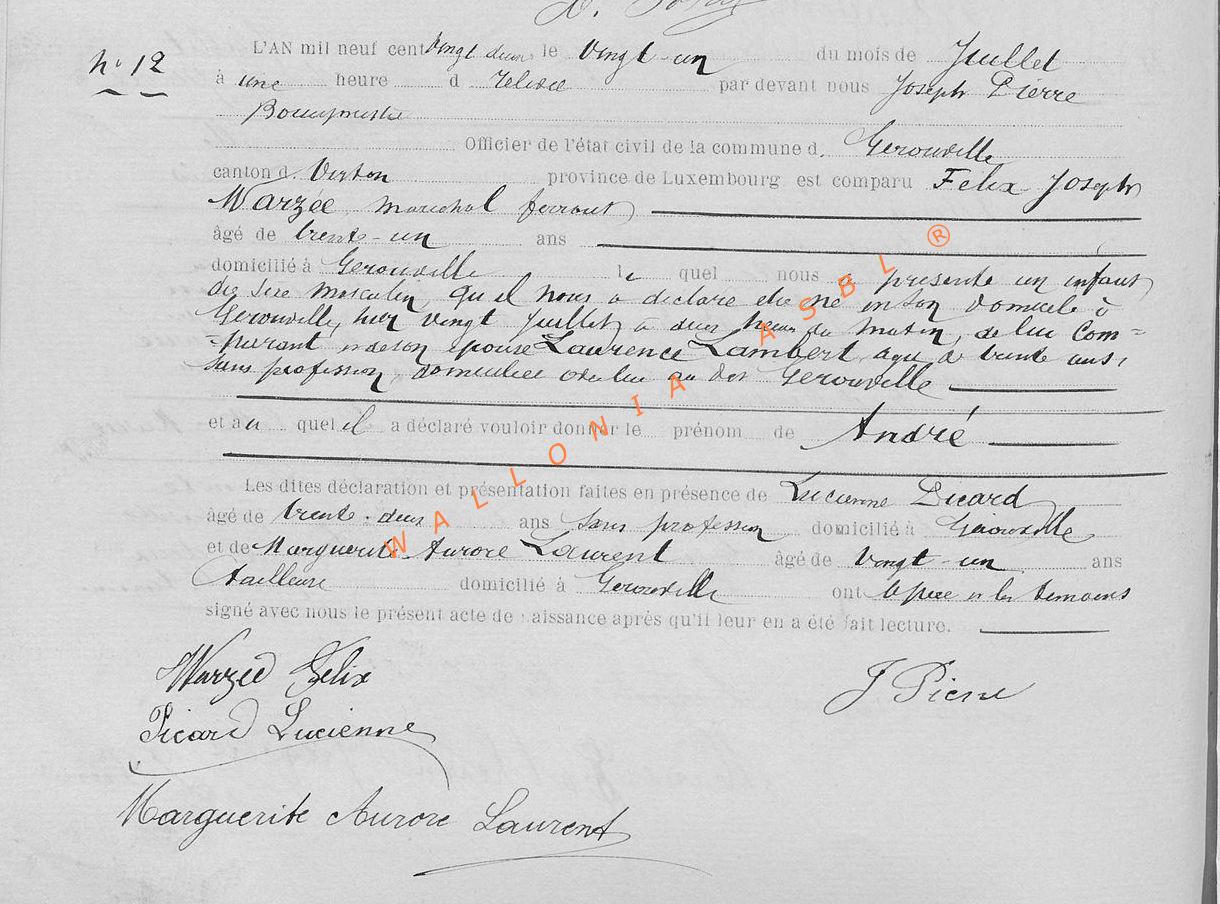 N° 12
L'AN mil neuf cent vingt deux le vingt-un du mois de Juillet
à une heure d relevée par devant nous Joseph Pierre
Bourgmestre
Officier de l'état civil de la commune d. Gérouville
canton d. Virton province de Luxembourg est comparu Félix Joseph
Warzée, maréchal ferrant
âgé de trente-un ans
domicilié à Gérouville le quel nous a présenté un enfant
du sexe masculin, qu'il nous a déclaré être né en son domicile à
Gérouville, hier vingt Juillet, à deux heures du matin, de lui Com=
parant et de son épouse Laurence Lambert, âgée de trente ans,
sans profession, domiciliée avec lui au dit Gérouville
et au quel il a déclaré vouloir donner le prénom de André
Les dites déclaration et présentation faites en présence de Lucienne Picard
âgé de trente-deux ans sans profession domicilié à Gérouville
et de Marguerite Aurore Laurent âgé de vingt-un ans
tailleuse domicilié à Gérouville ont le père et les témoins
signé avec nous le présent acte de naissance après qu'il leur en a été fait lecture.
Warzée Félix
J Pierre
Picard Lucienne
Marguerite Aurore Laurent
WALLONIA ASBL ®